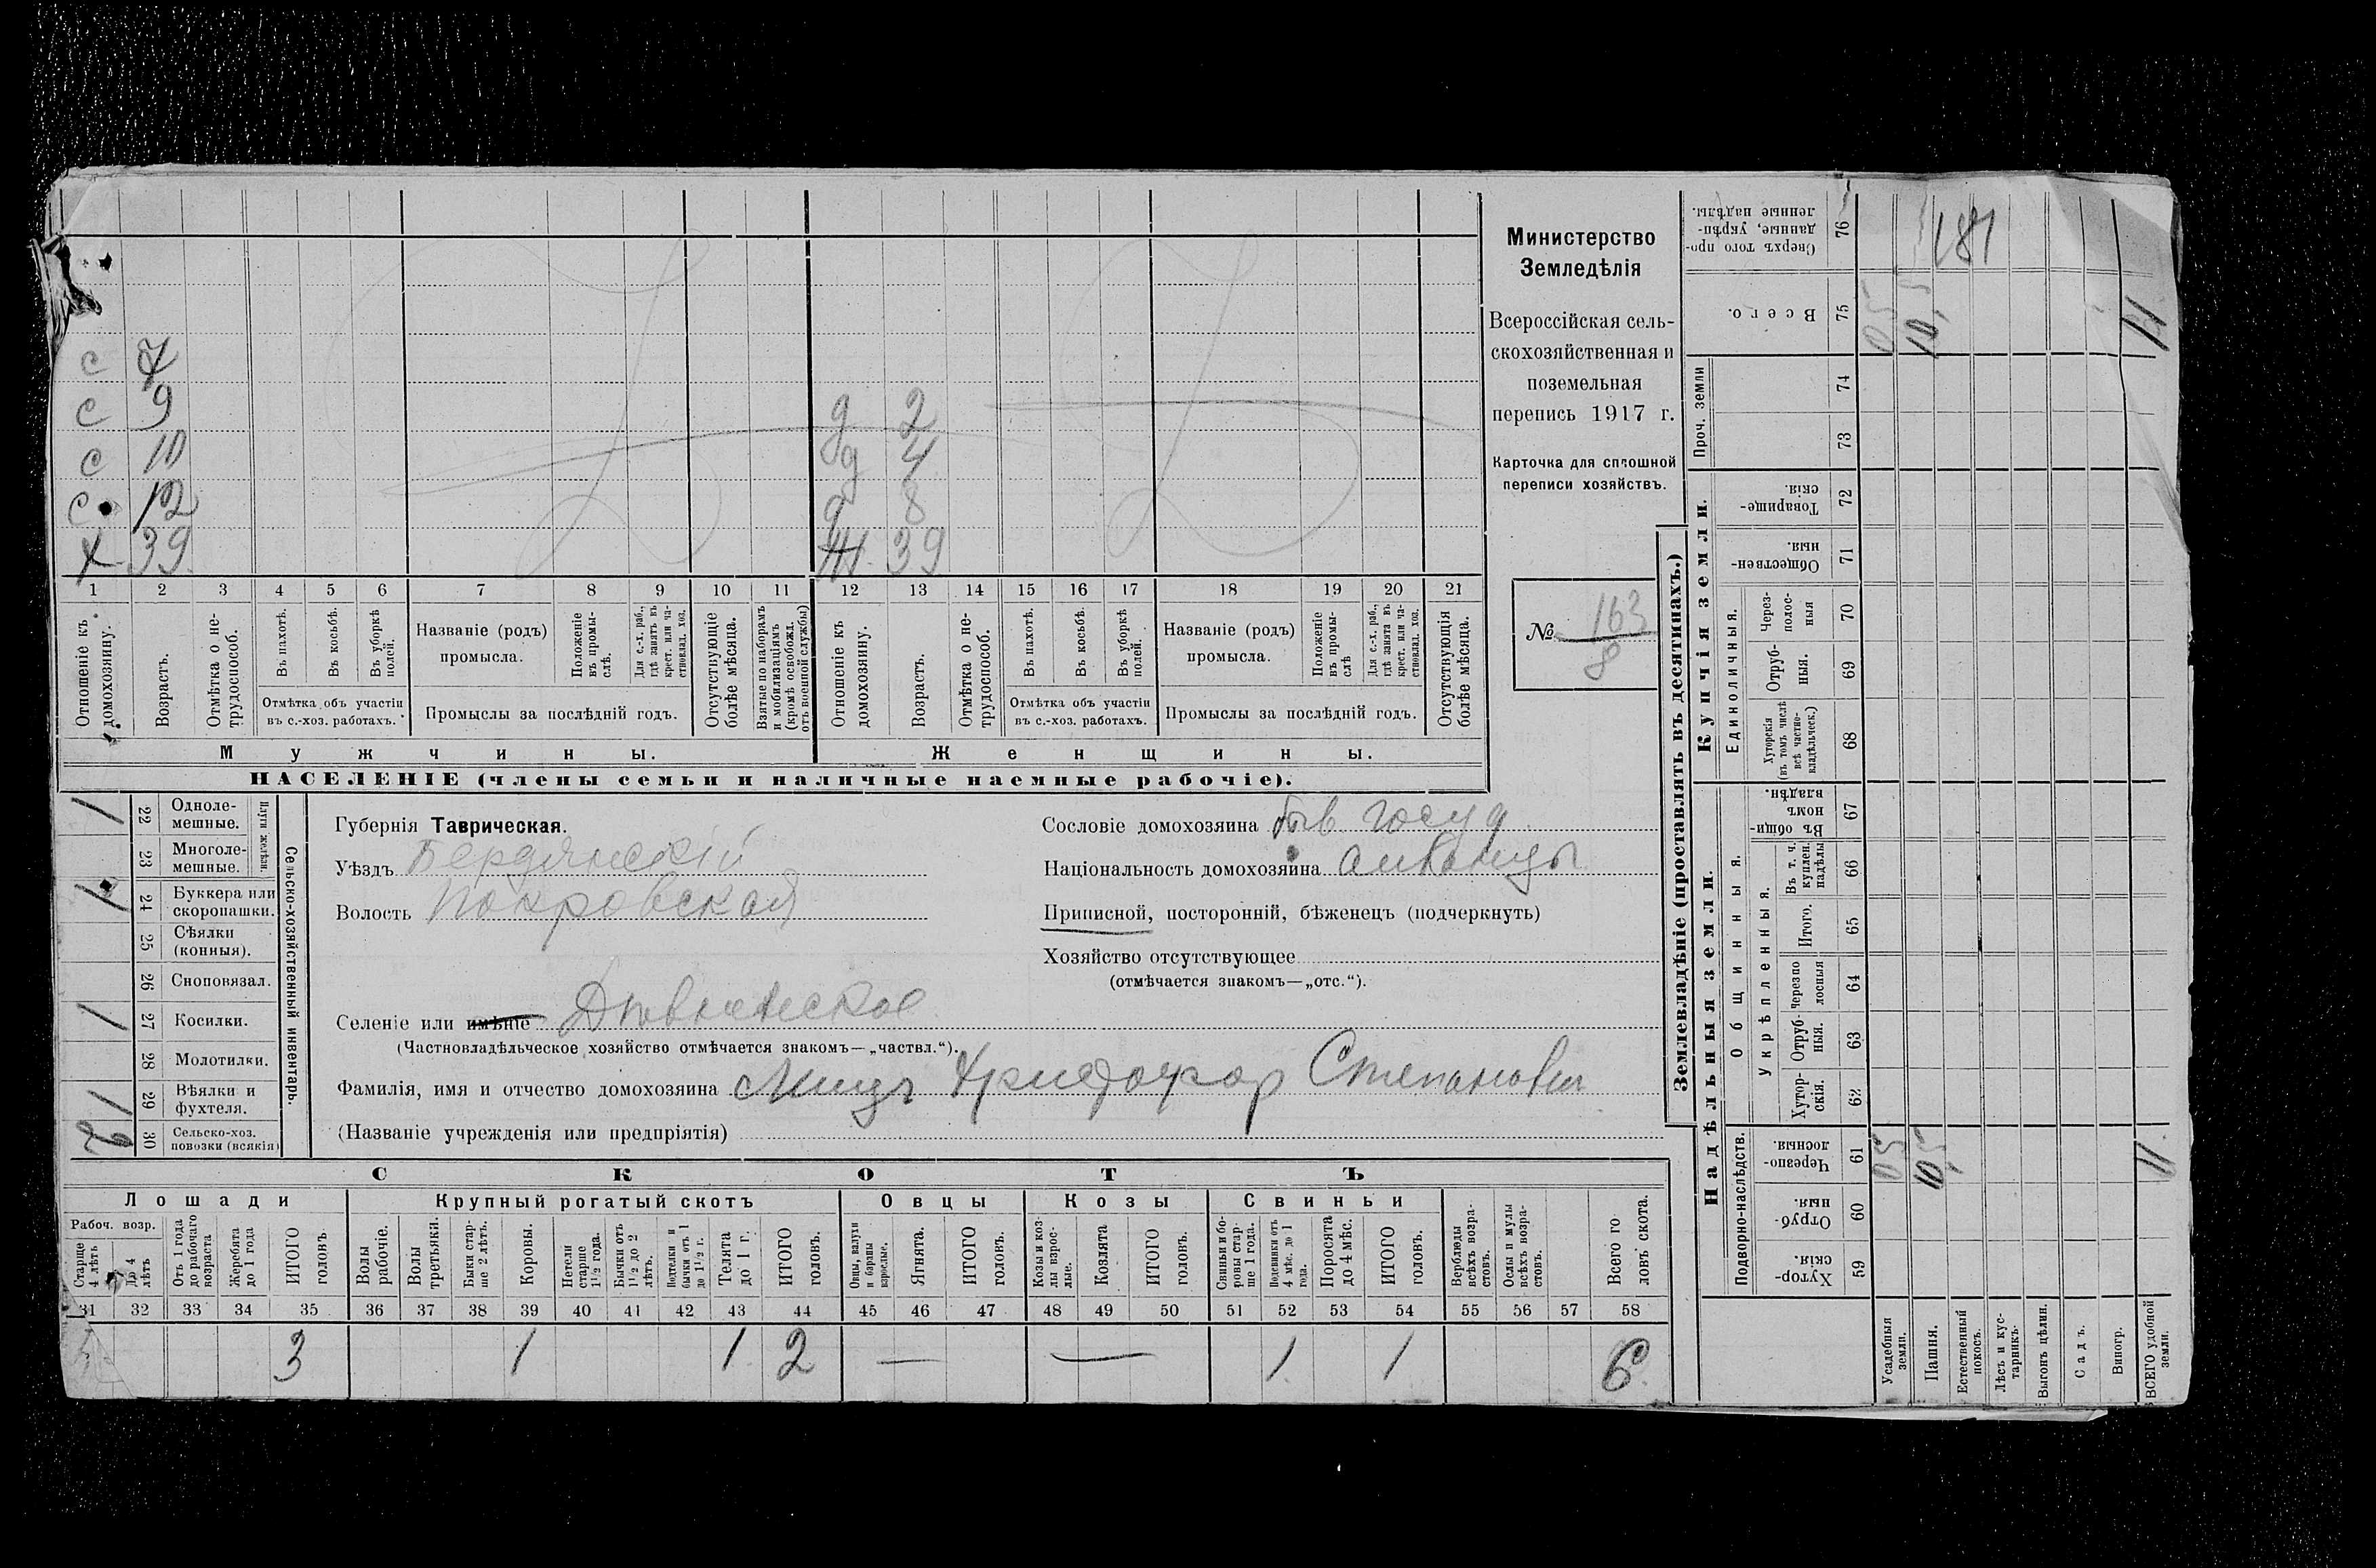 Министерство
Земледѣлія
Всероссійская сель-
скохозяйственная и
поземельная
перепись 1917 г.
Карточка для сплошной
переписи хозяйствъ.
№ 163
8
с 7
с 9
с 10
с 12
х 39
д 2
д 4
д 8
ж 39
1 2 3 4 5 6 7 8 9 10 11 12 13 14 15 16 17 18 19 20 21
Отношеніе къ домохозяину.
Возрастъ.
Отмѣтка о не-трудоспособ.
Въ пахотѣ.
Въ косьбѣ.
Въ уборкѣ полей.
Отмѣтка объ участіи
въ с.-хоз. работахъ.
Названіе (родъ)
промысла.
Положеніе въ промы-слѣ.
Для с.-х. раб., гдѣ занятъ въ крест. или ча-стновлад. хоз.
Промыслы за послѣдній годъ.
Отсутствующіе болѣе мѣсяца.
Взятые по наборамъ и мобилизаціямъ (кромѣ освобожд. отъ военной службы)
Отношеніе къ домохозяину.
Возрастъ.
Отмѣтка о не-трудоспособ.
Въ пахотѣ.
Въ косьбѣ.
Въ уборкѣ полей.
Отмѣтка объ участіи
въ с.-хоз. работахъ.
Названіе (родъ)
промысла.
Положеніе въ промы-слѣ
Для с.-х. раб., гдѣ занята въ крест. или ча-стновлад. хоз.
Промыслы за послѣдній годъ.
Отсутствующія болѣе мѣсяца.
Мужчины.
Женщины.
НАСЕЛЕНІЕ (члены семьи и наличные наемные рабочіе).
Сельско-хозяйственный инвентарь.
Плуги желѣзн.
1 22 Одноле-мешные.
23 Многоле-мешные.
1 24 Буккера или скоропашки.
25 Сѣялки (конныя).
26 Сноповязал.
1 27 Косилки.
28 Молотилки.
1 29 Вѣялки и фухтеля.
2 30 Сельско-хоз. повозки (всякія)
Губернія Таврическая.
Уѣздъ Бердянскій
Волость Покровская
Селеніе или имѣніе
(Частновладѣльческое хозяйство отмѣчается знакомъ—„частвл.“).
Фамилія, имя и отчество домохозяина Христофор Степанович
(Названіе учрежденія или предпріятія)
Сословіе домохозяина быв госуд
Національность домохозяина
Приписной, посторонній, бѣженецъ (подчеркнуть)
Хозяйство отсутствующее
(отмѣчается знакомъ—„отс.“).
СКОТЪ
Лошади
Крупный рогатый скотъ
Овцы
Козы
Свиньи
Рабоч. возр.
Старше 4 лѣтъ
До 4 лѣтъ
Отъ 1 года до рабочаго возраста
Жеребята до 1 года
ИТОГО головъ
Волы рабочіе.
Волы третьяки.
Быки стар-ше 2 лѣтъ.
Коровы.
Нетели старше 1½ года.
Бычки отъ 1½ до 2 лѣтъ.
Подтелки и бычки отъ 1 до 1½ г.
Телята до 1 г.
ИТОГО головъ.
Овцы, валухи и бараны взрослые.
Ягнята.
ИТОГО головъ.
Козы и коз-лы взрос-лые.
Козлята
ИТОГО головъ.
Свиньи и бо-ровы стар-ше 1 года.
Подсвинки отъ 4 мѣс. до 1 года.
Поросята до 4 мѣс.
ИТОГО головъ.
Верблюды всѣхъ возра-стовъ.
Ослы и мулы всѣхъ возра-стовъ.
Всего го ловъ скота.
31 32 33 34 35 36 37 38 39 40 41 42 43 44 45 46 47 48 49 50 51 52 53 54 55 56 57 58
3 1 1 2 — — 1 1 6
Землевладѣніе (проставлять въ десятинахъ.)
Надѣльныя земли.
Купчія земли.
Проч. земли
Подворно-наслѣдств.
Общинныя.
Укрѣпленныя.
Единоличныя.
Хутор-скія 59
Отруб-ныя. 60
Черезпо-лосныя. 61
Хутор-скія. 62
Отруб-ныя. 63
Черезпо лосныя 64
Итого. 65
Въ т. ч. куплен. надѣлы 66
Въ общин-номъ владѣн. 67
Хуторскія (въ томъ числѣ всѣ частно-владѣльческ.) 68
Отруб-ныя. 69
Через-полос-ныя 70
Обществен-ныя. 71
Товарище-скія. 72
73
74
Всего. 75
Сверхъ того про-данные, укрѣп-ленные надѣлы. 76
Усадебныя земли. 05 05
Пашня. 10,5 10,5
Естественный покосъ.
Лѣсъ и кус-тарникъ.
Выгонъ цѣлин.
Садъ.
Виногр.
ВСЕГО удобной земли. 11 11
181